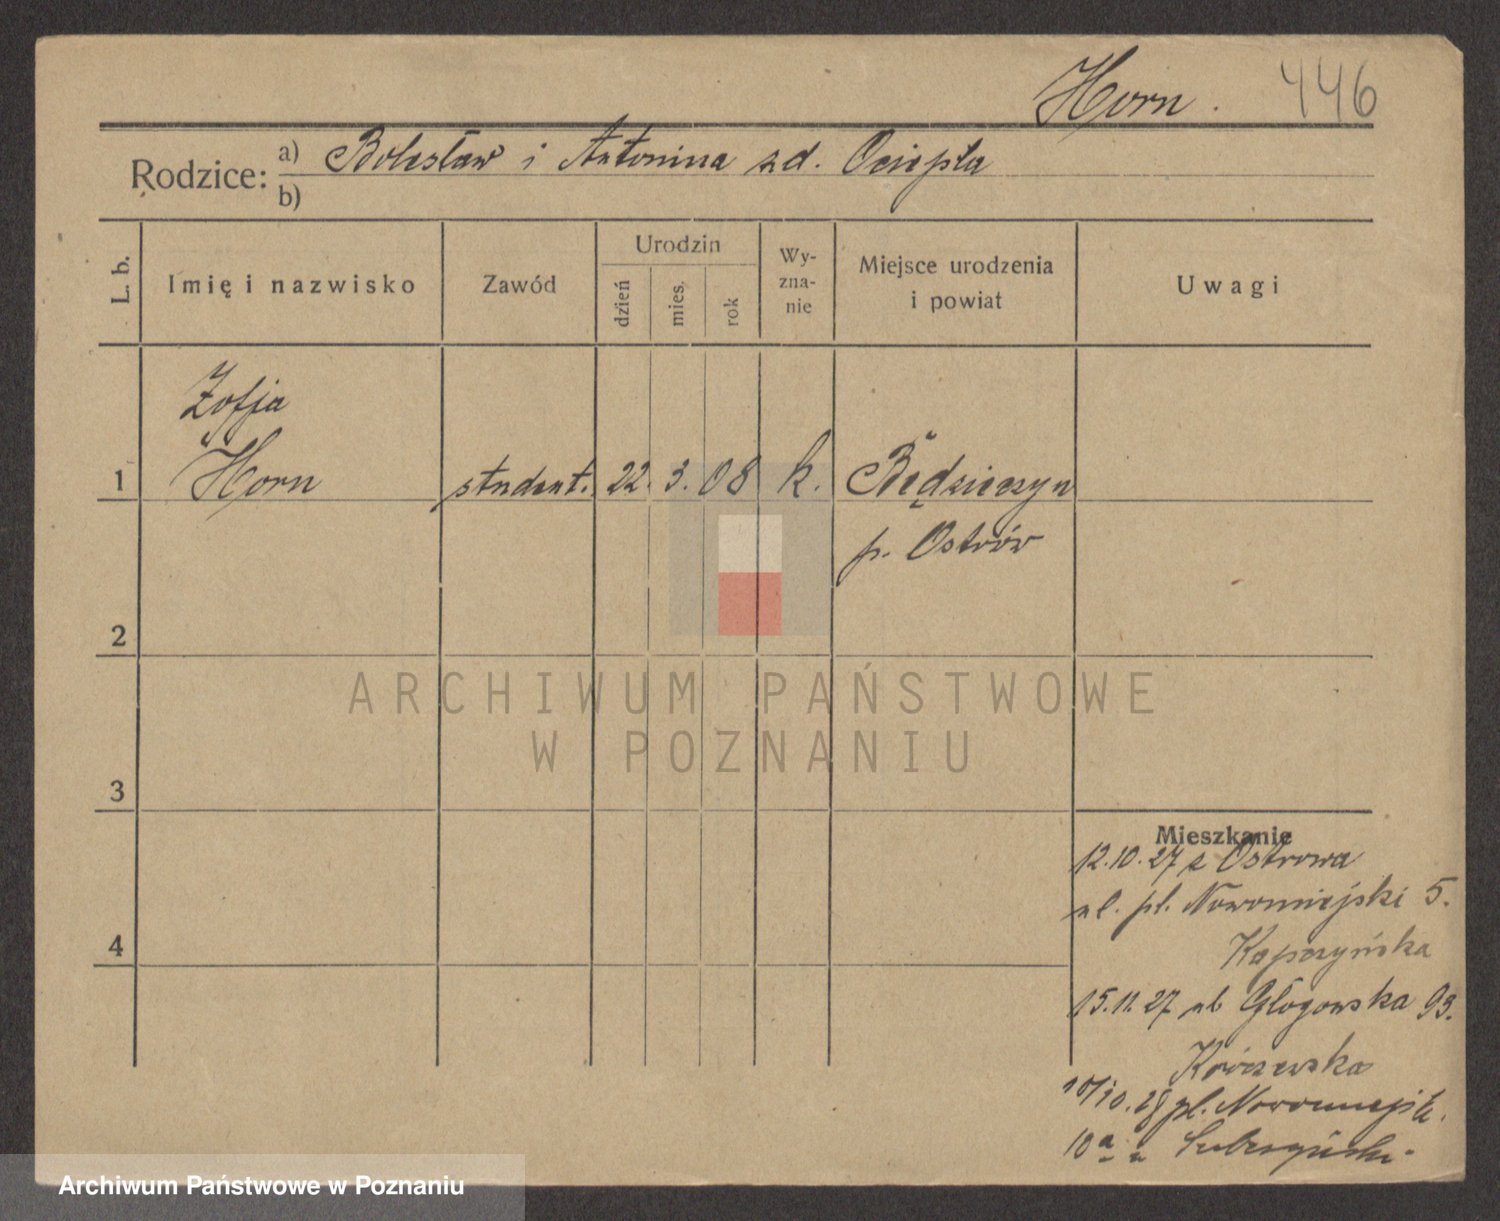 Horn. 446
Rodzice: a) Bolesław i Antonina zd. Ociepla
b)
L. b.
Imię i nazwisko
Zawód
Urodzin
dzień
mies.
rok
Wy-
zna-
nie
Miejsce urodzenia
i powiat
Uwagi
Zofja
1 Horn student. 22. 3. 08 k. Będzieszyn
p. Ostrów
2
3
4
Mieszkanie
12.10.27 z Ostrowa
ul. pl. Nowomiejski 5.
Kapczyńska
15.11.27 ul Głogowska 93.
10/10.28 pl. Nowomiejsk.
10a u
ARCHIWUM PAŃSTWOWE
W POZNANIU
Archiwum Państwowe w Poznaniu